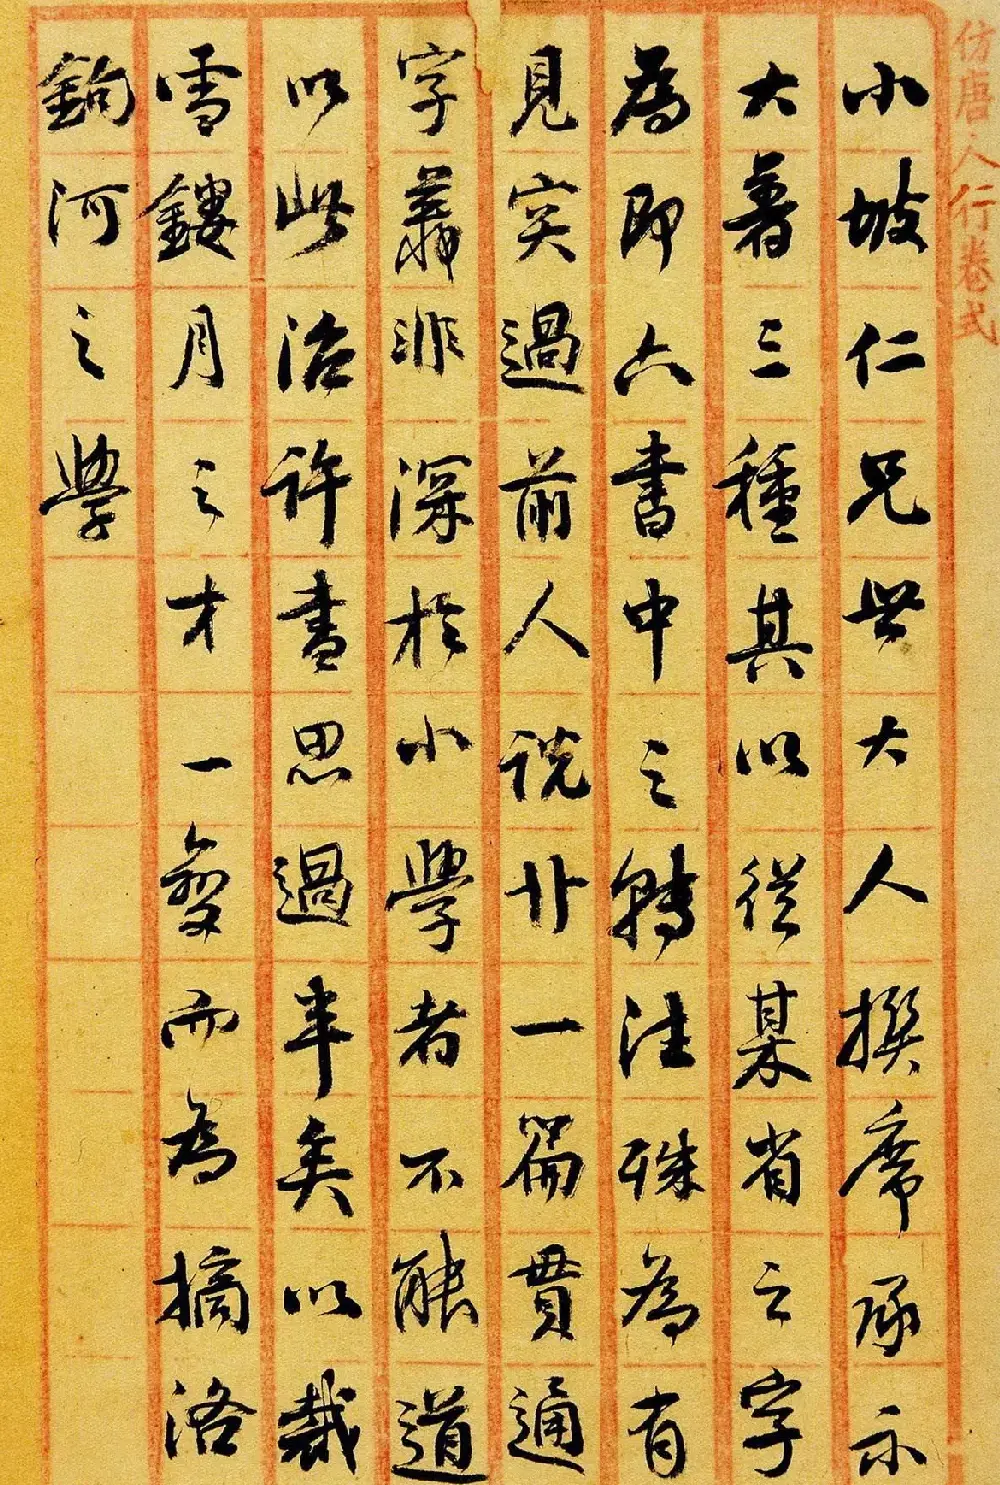 仿唐人行卷式
小坡仁兄世大人撰席承示
大著三種其以從某省之字
為即六書中之轉注殊為有
見突過前人說一篇貫通
字義非深於小學者不能道
以此治許書思過半矣以裁
雪鏤月之才一變而為摘洛
鉤河之學